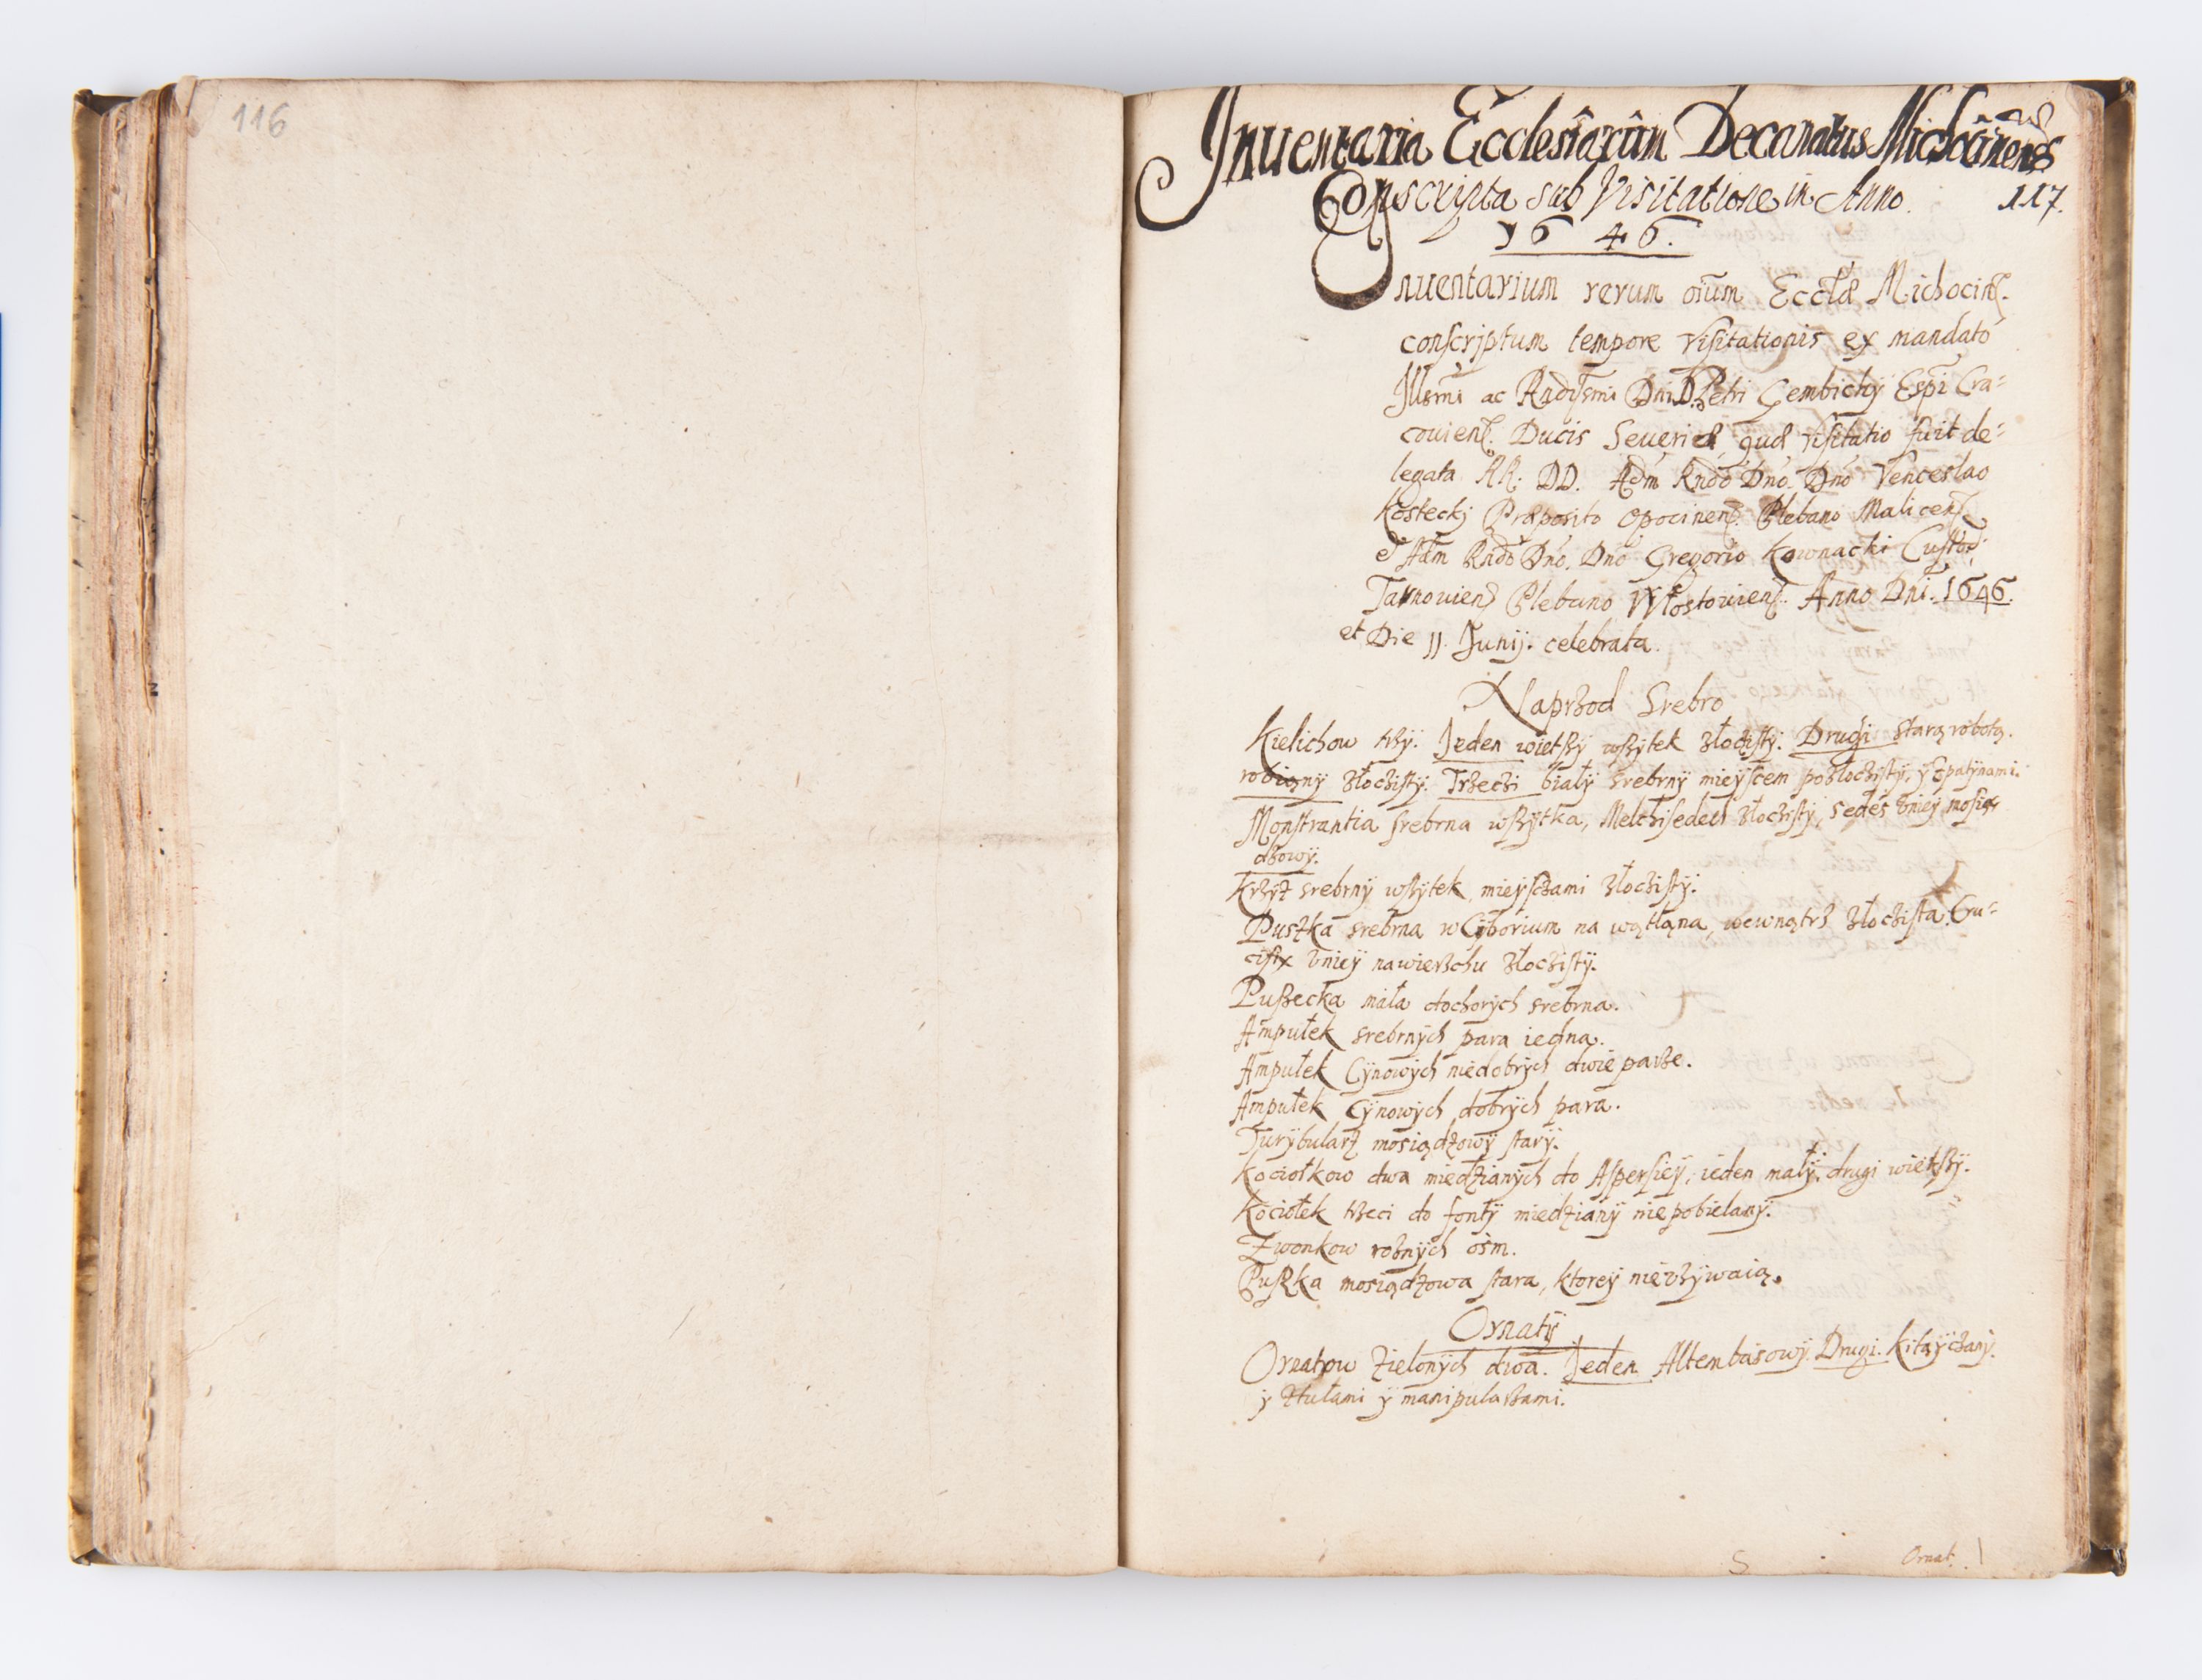 116
Inuentaria Ecclesiarum Decanatus Michocinensis
Conscripta sub Visitatione in Anno. 117.
1646.
Inuentarium rerum oium Ecctæ Michocin.
conscriptum tempore Visitationis ex mandato
Illsmi ac Rndissmi Dni D. Petri Gembicky Espi Cra=
couien. Ducis Seueriæ, quæ visitatio fuit de=
legata RR. DD. Adm Rndo Dno. Dno Venceslao
Kostecky Præposito Opocinen. Plebano Malicen.
et Adm Rndo Dno. Dno Gregorio Kownacki Custod.
Tarnouien Plebano Włostouien. Anno Dni. 1646.
et Die 11. Junij. celebrata.
Naprzod Srebro
Kielichow trzy. Jeden wietszy wszytek złocisty. Drugi starą robotą.
robiony złocisty. Trzeci biały srebrny mieyscem pozłocisty, y spatynami.
Monstrantia srebrna wszytka, Melchisedech złocisty, sedes vniey mosią
dzowy.
Krzyż srebrny wszytek, mieyscami złocisty.
Puszka srebrna w Cyborium na wątłąna, wewnątrz złocista. Cru=
cifix vniey nawierzchu złocisty.
Puszecka mała dochorych srebrna.
Ampułek srebrnych para iedna.
Ampułek Cynowych niedobrych dwie parze.
Ampułek Cynowych dobrych para.
Turybularz mosiądzowy stary.
Kociołkow dwa miedzianych do Aspersiey, ieden mały, drugi wietszy.
Kociołek trzeci do fonty miedziany niepobielany.
Zwonkow roznych ośm.
Puszka mosiądzowa stara, ktorey nievzywaią.
Ornaty
Ornatow zielonych dwa. Jeden Altembasowy. Drugi. Kitayczany.
y Stułami y manipularzami.
Ornat.